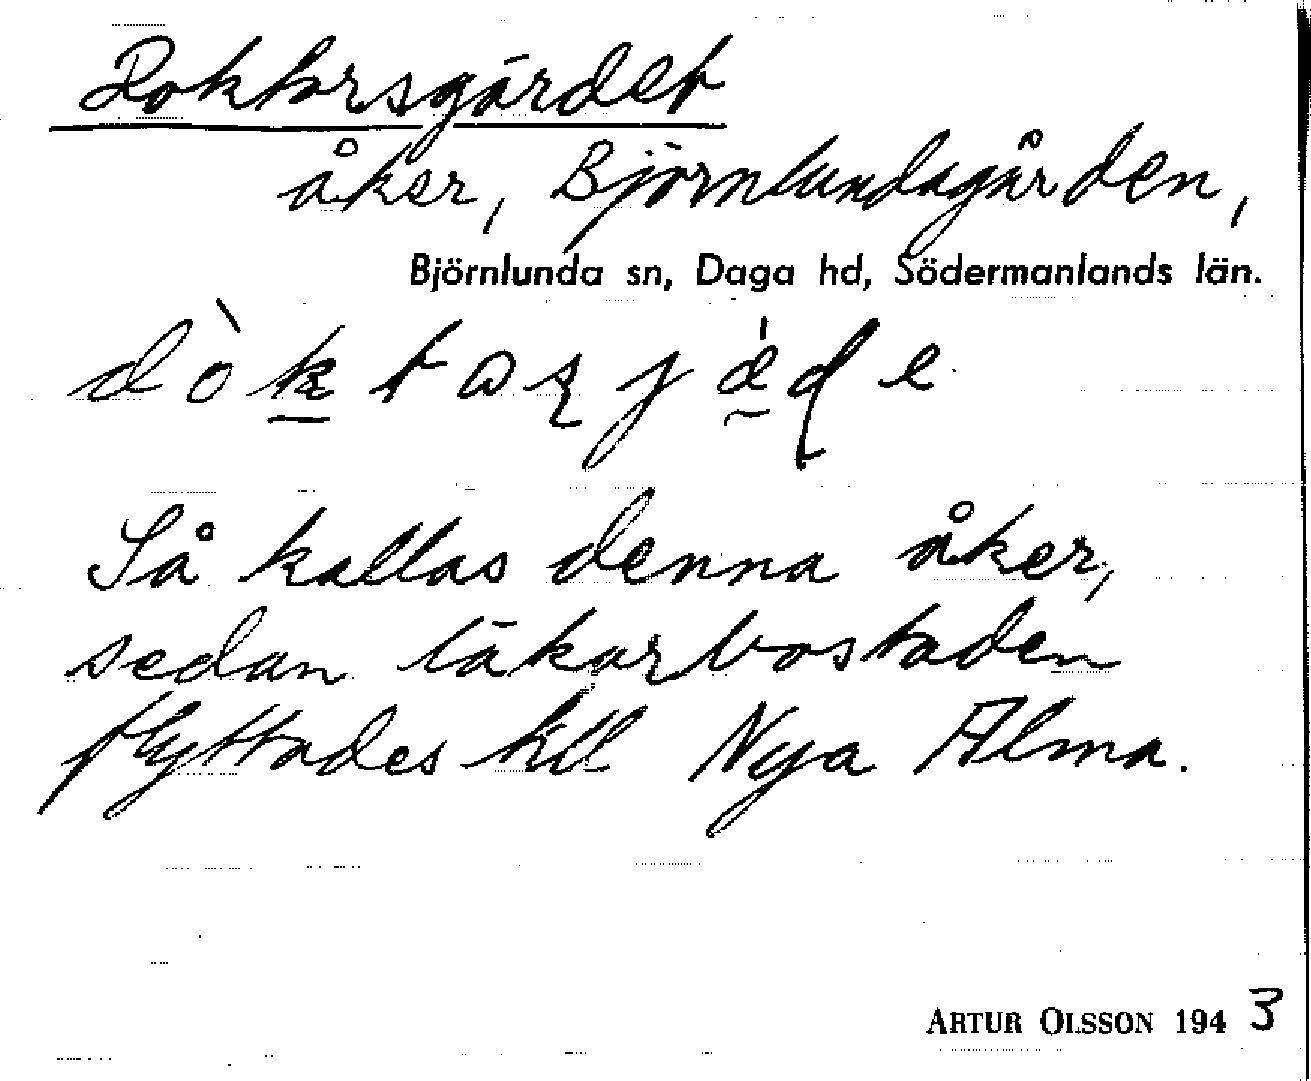 Doktorsgärdet
åker, Björnlundagården,
Björnlunda sn, Daga hd, Södermanlands län.
Så kallas denna åker,
sedan läkarbostaden
flyttades till Nya Alma.
ARTUR OLSSON 1943